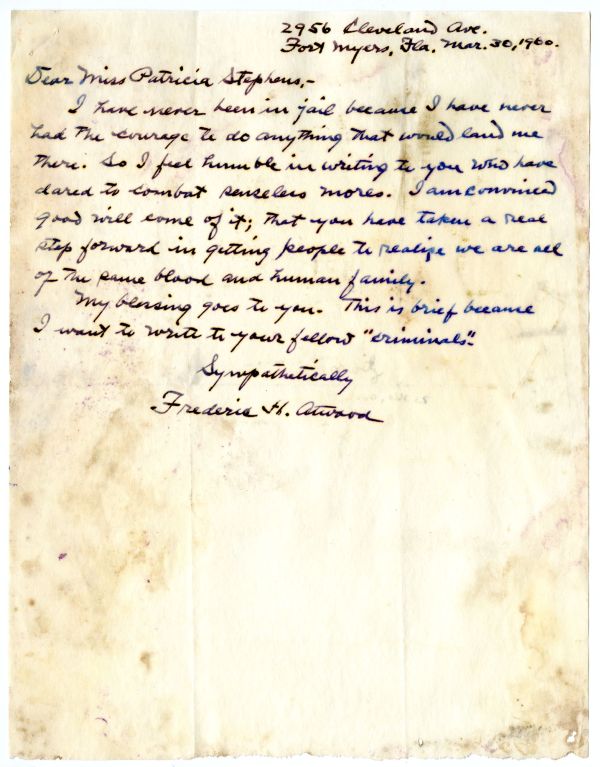 2956 Cleveland Ave.
Fort Myers, Fla. Mar. 30, 1960.
Dear Miss Patricia Stephens,-
I have never been in jail because I have never
had the courage to do anything that would land me
there. So I feel humble in writing to you who have
dared to combat senseless mores. I am convinced
good will come of it; that you have taken a real
step forward in getting people to realize we are all
of the same blood and human family.
My blessing goes to you. This is brief because
I want to write to your fellow "criminals".
Sympathetically
Frederic H. Atwood